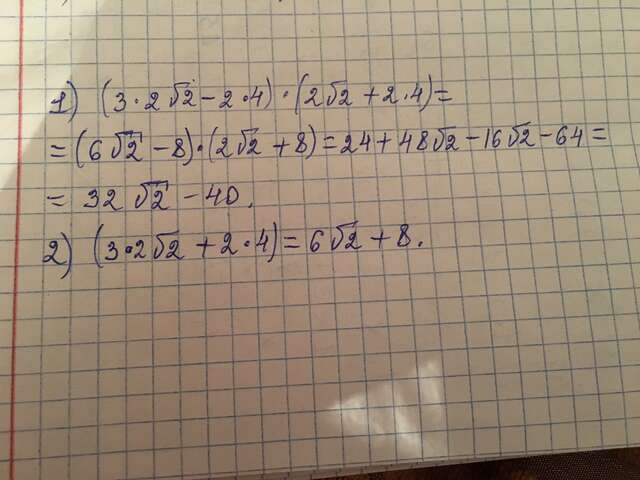 1) (3·2√2-2·4)·(2√2+2·4)=
=(6√2-8)·(2√2+8)=24+48√2-16√2-64=
=32√2-40.
2) (3·2√2+2·4)=6√2+8.